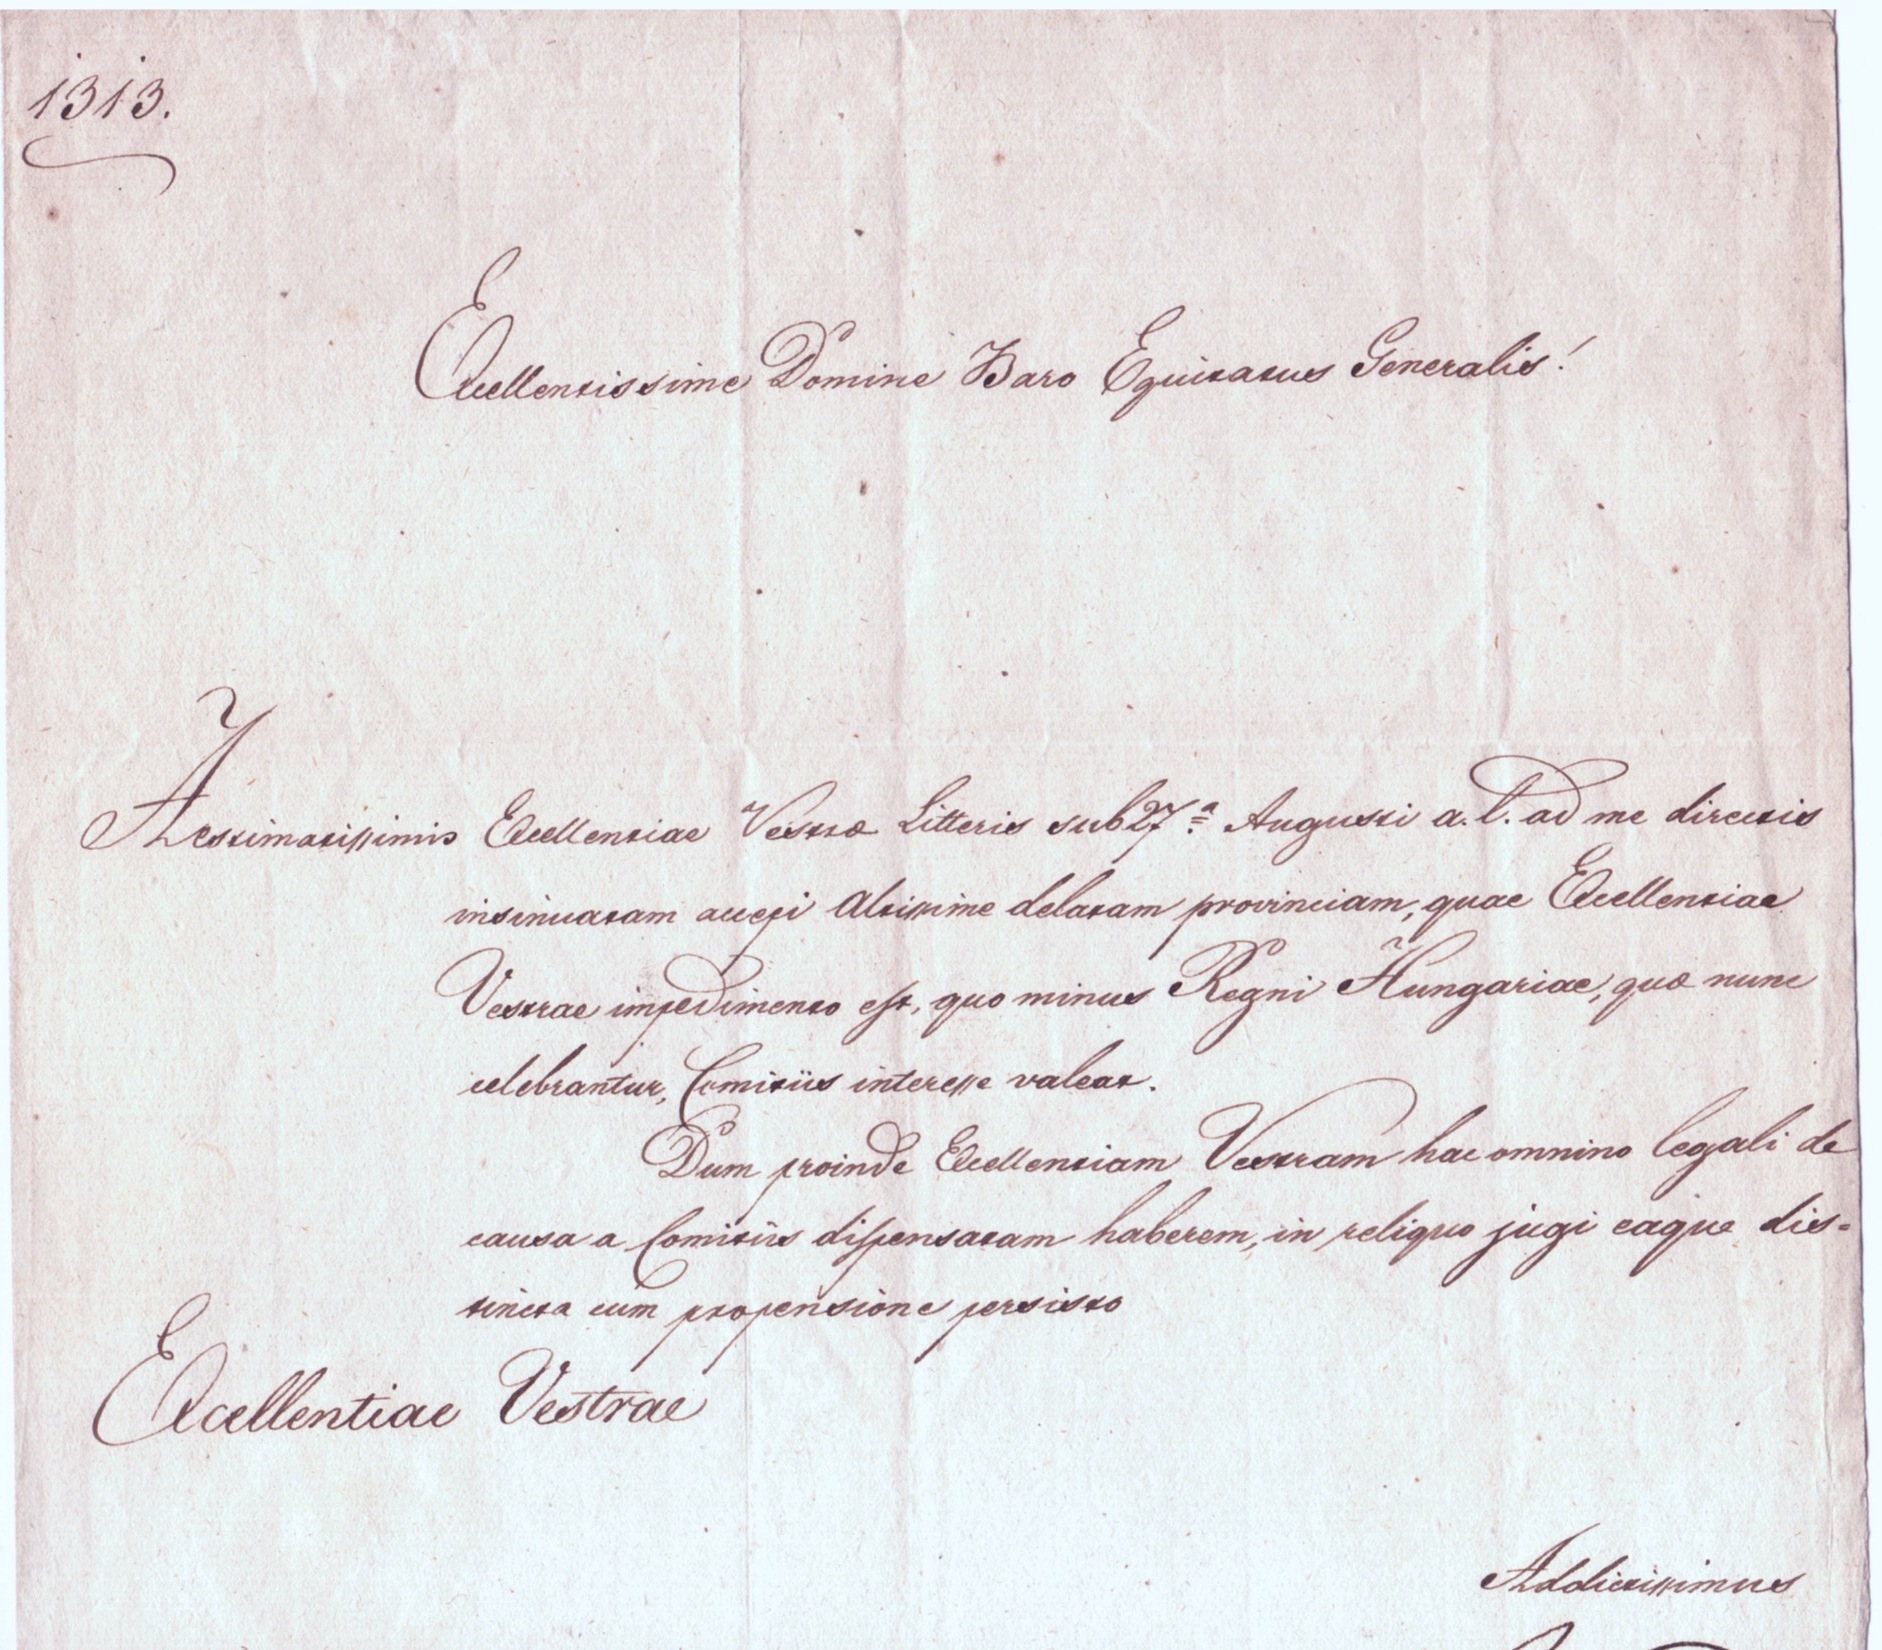 1313.
Excellentissime Domine Baro Equitatus Generalis!
Aestimatissimis Excellentiae Vestræ Litteris sub 27ª Augusti a. l. ad me directis
insinuatam accepi Altissime delatam provinciam, quae Excellentiae
Vestrae impedimento est, quo minus Regni Hungariae, quæ nunc
celebrantur, Comitiis interesse valeat.
Dum proinde Excellentiam Vestram hac omnino legali de
causa a Comitiis dispensatam haberem, in reliquo jugi eaque dis=
tincta cum propensione persisto
Excellentiae Vestrae
Addictissimus